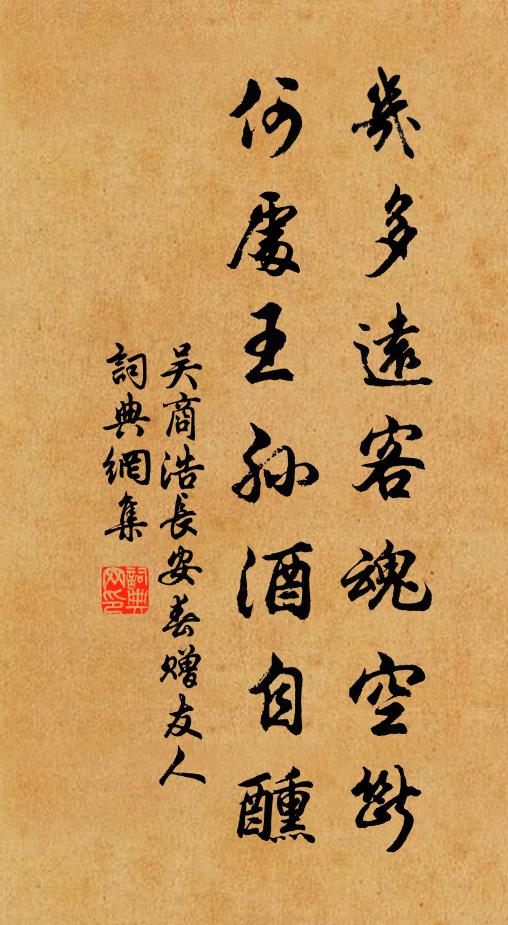 幾多遠客魂空斷
何處王孫酒自醺
吴商浩長安春贈友人
詞典網集
詞典網印